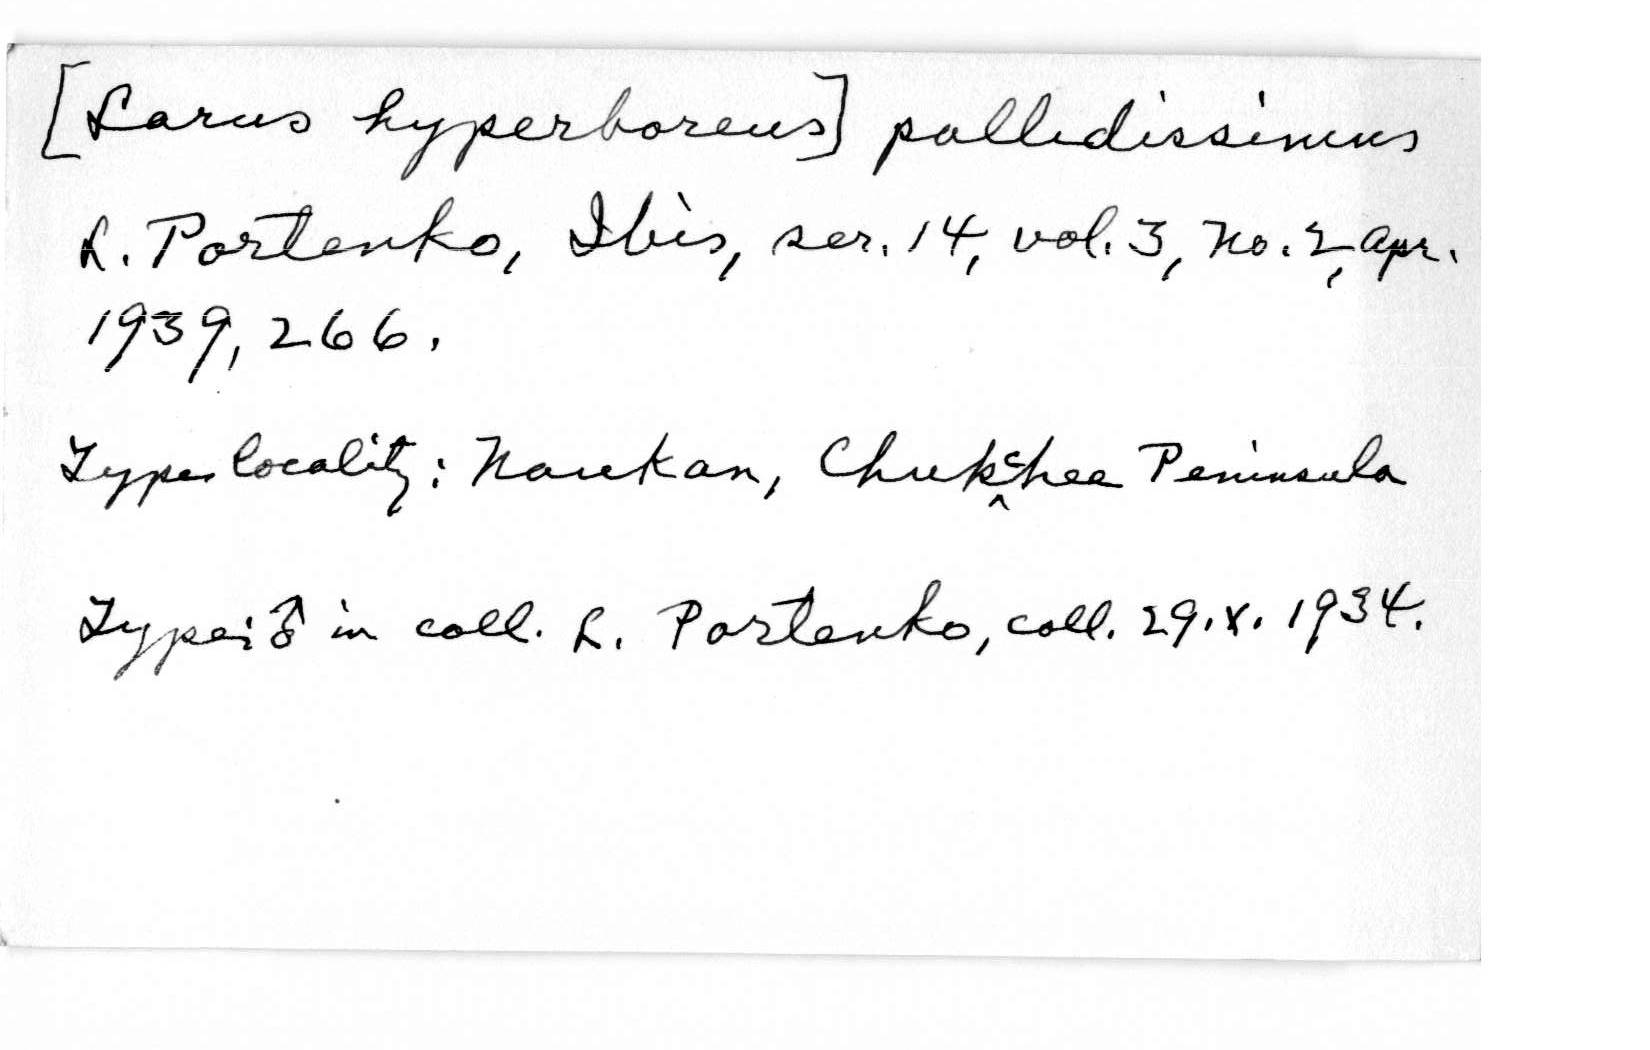 [Larus hyperboreus] pallidissimus
L. Portenko, Ibis, ser. 14, vol. 3, No. 2, Apr.
1939, 266.
Type locality: Naukan, Chukchee Peninsula
Type: ♂ in coll. L. Portenko, coll. 29.X.1934.